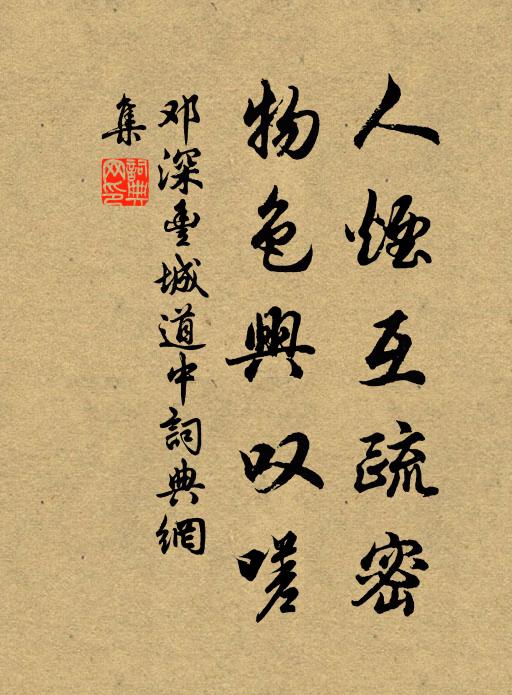 人煙互疏密
物色興叹嗟
邓深豊城道中詞典網
集
詞典
网印